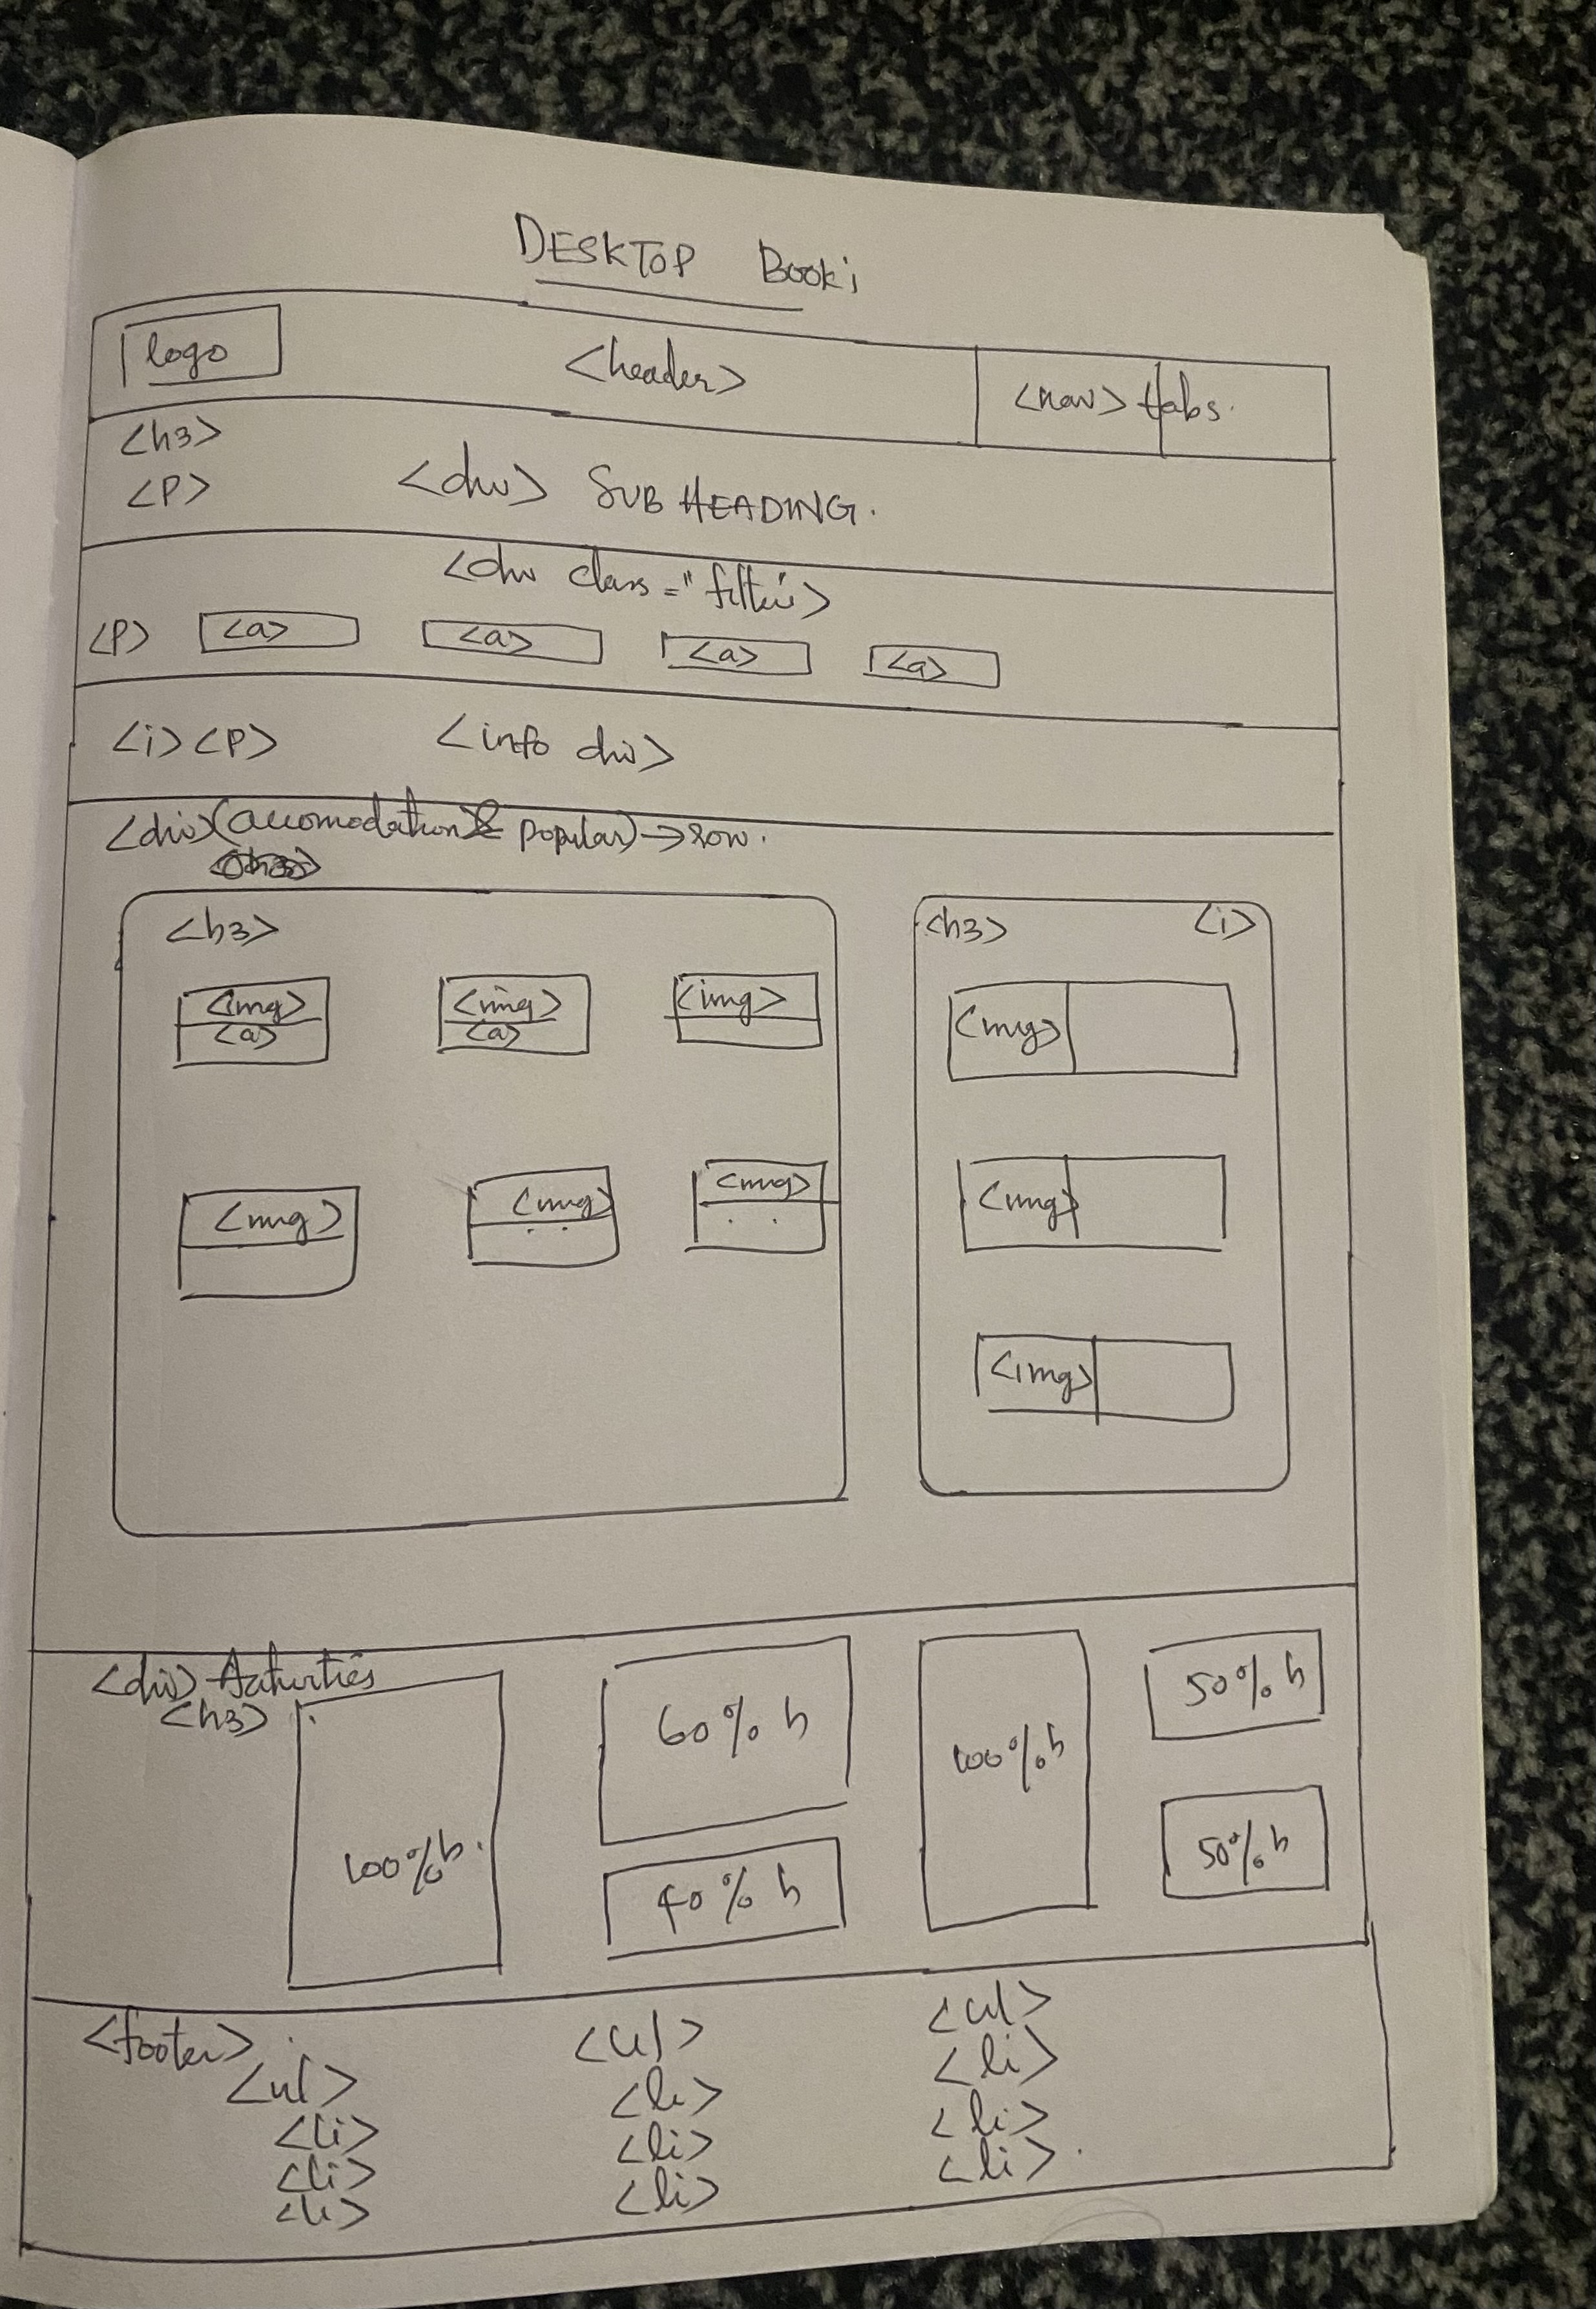 DESKTOP Booki
logo <header> <nav> tabs.
<h3>
<P> <div> SUB HEADING.
<div class="filters>
<P> <a> <a> <a> <a>
<i> <P> <info div>
<div> (accomodation & popular) → row.
<h3> <h3> <i>
<img> <img> <img> <img>
<a> <a>
<img> <img> <img> <img>
<img>
<div> Activities
<h3>
100% h. 60% h 100% h 50% h
40% h 50% h
<footer>
<ul> <ul> <ul>
<li> <li> <li>
<li> <li> <li>
<li> <li> <li>